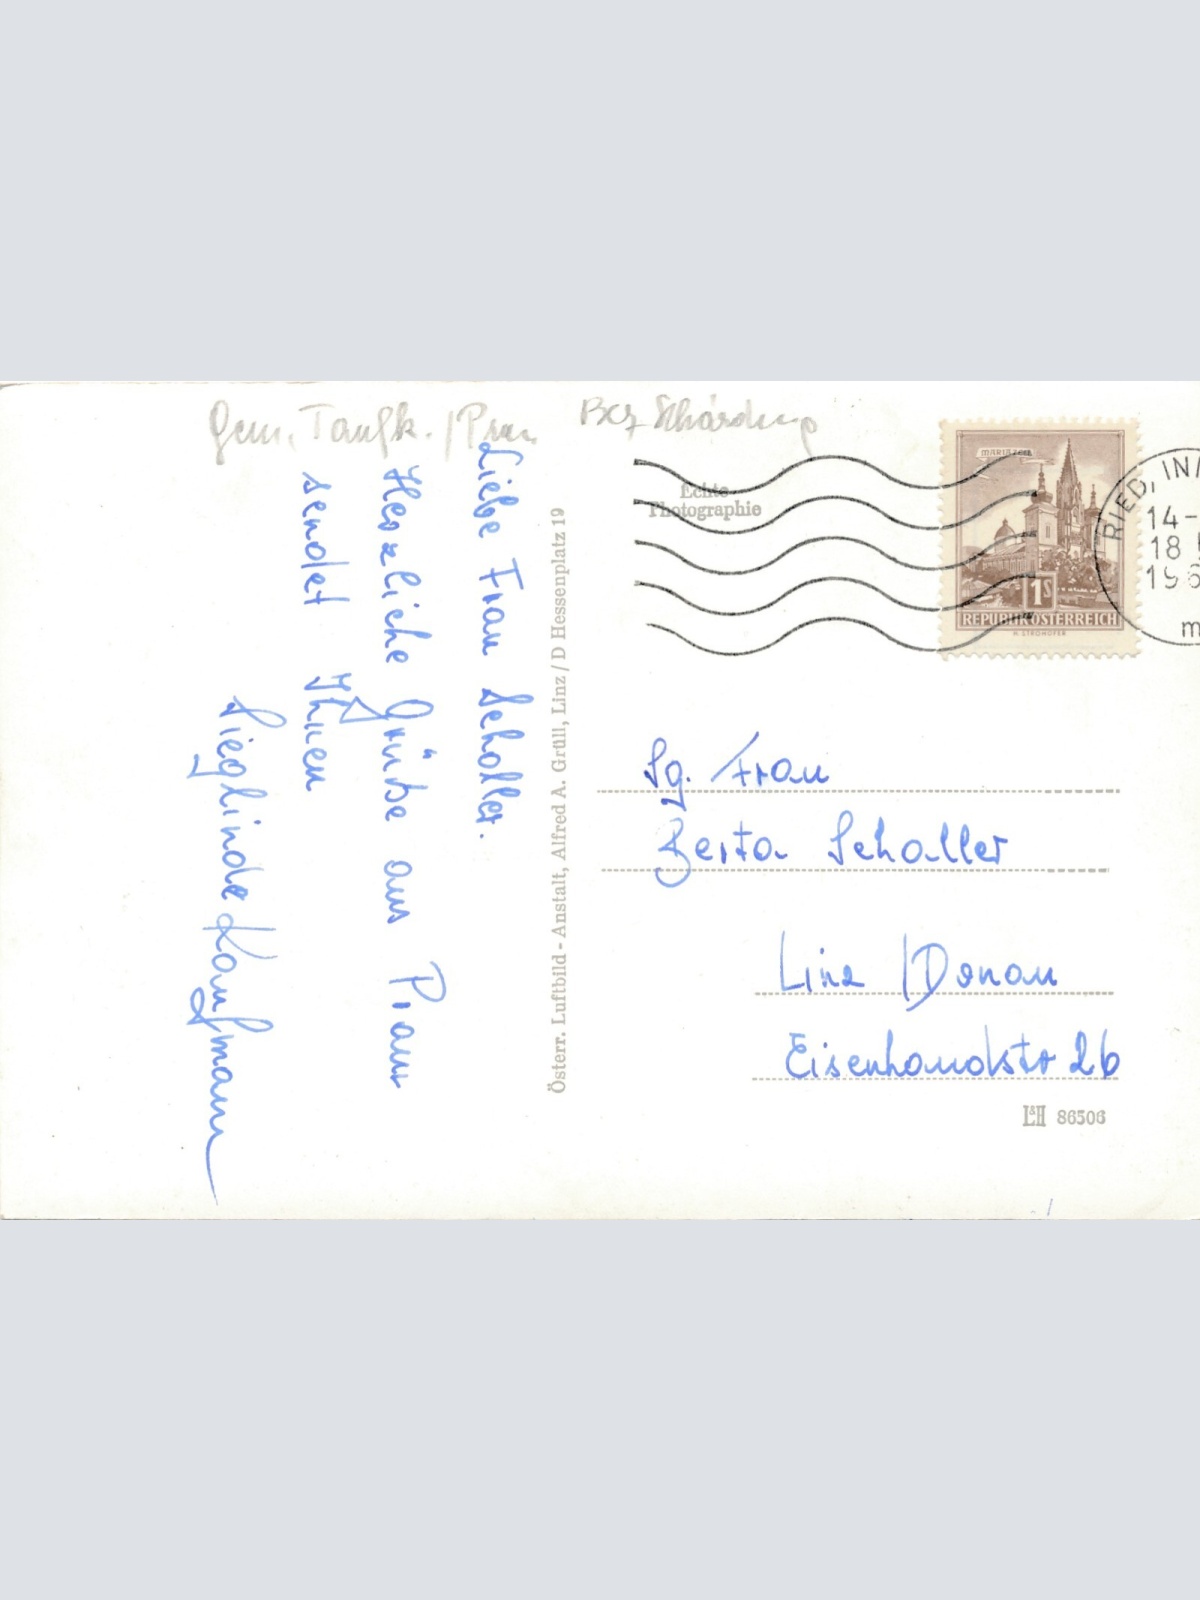 Gem. Taufk. / Pram Bez Schärding
Liebe Frau Schaller.
Herzliche Grüße aus Pram
sendet Ihnen
Sieglinde Kaufmann
Österr. Luftbild - Anstalt, Alfred A. Grüll, Linz / D Hessenplatz 19
Echte
Photographie
MARIAZELL
1S
REPUBLIK ÖSTERREICH
H. STROHOFER
RIED, INN
14-
18
196
m
Sg. Frau
Berta Schaller
Linz / Donau
Eisenhandstr 26
L&H 86506